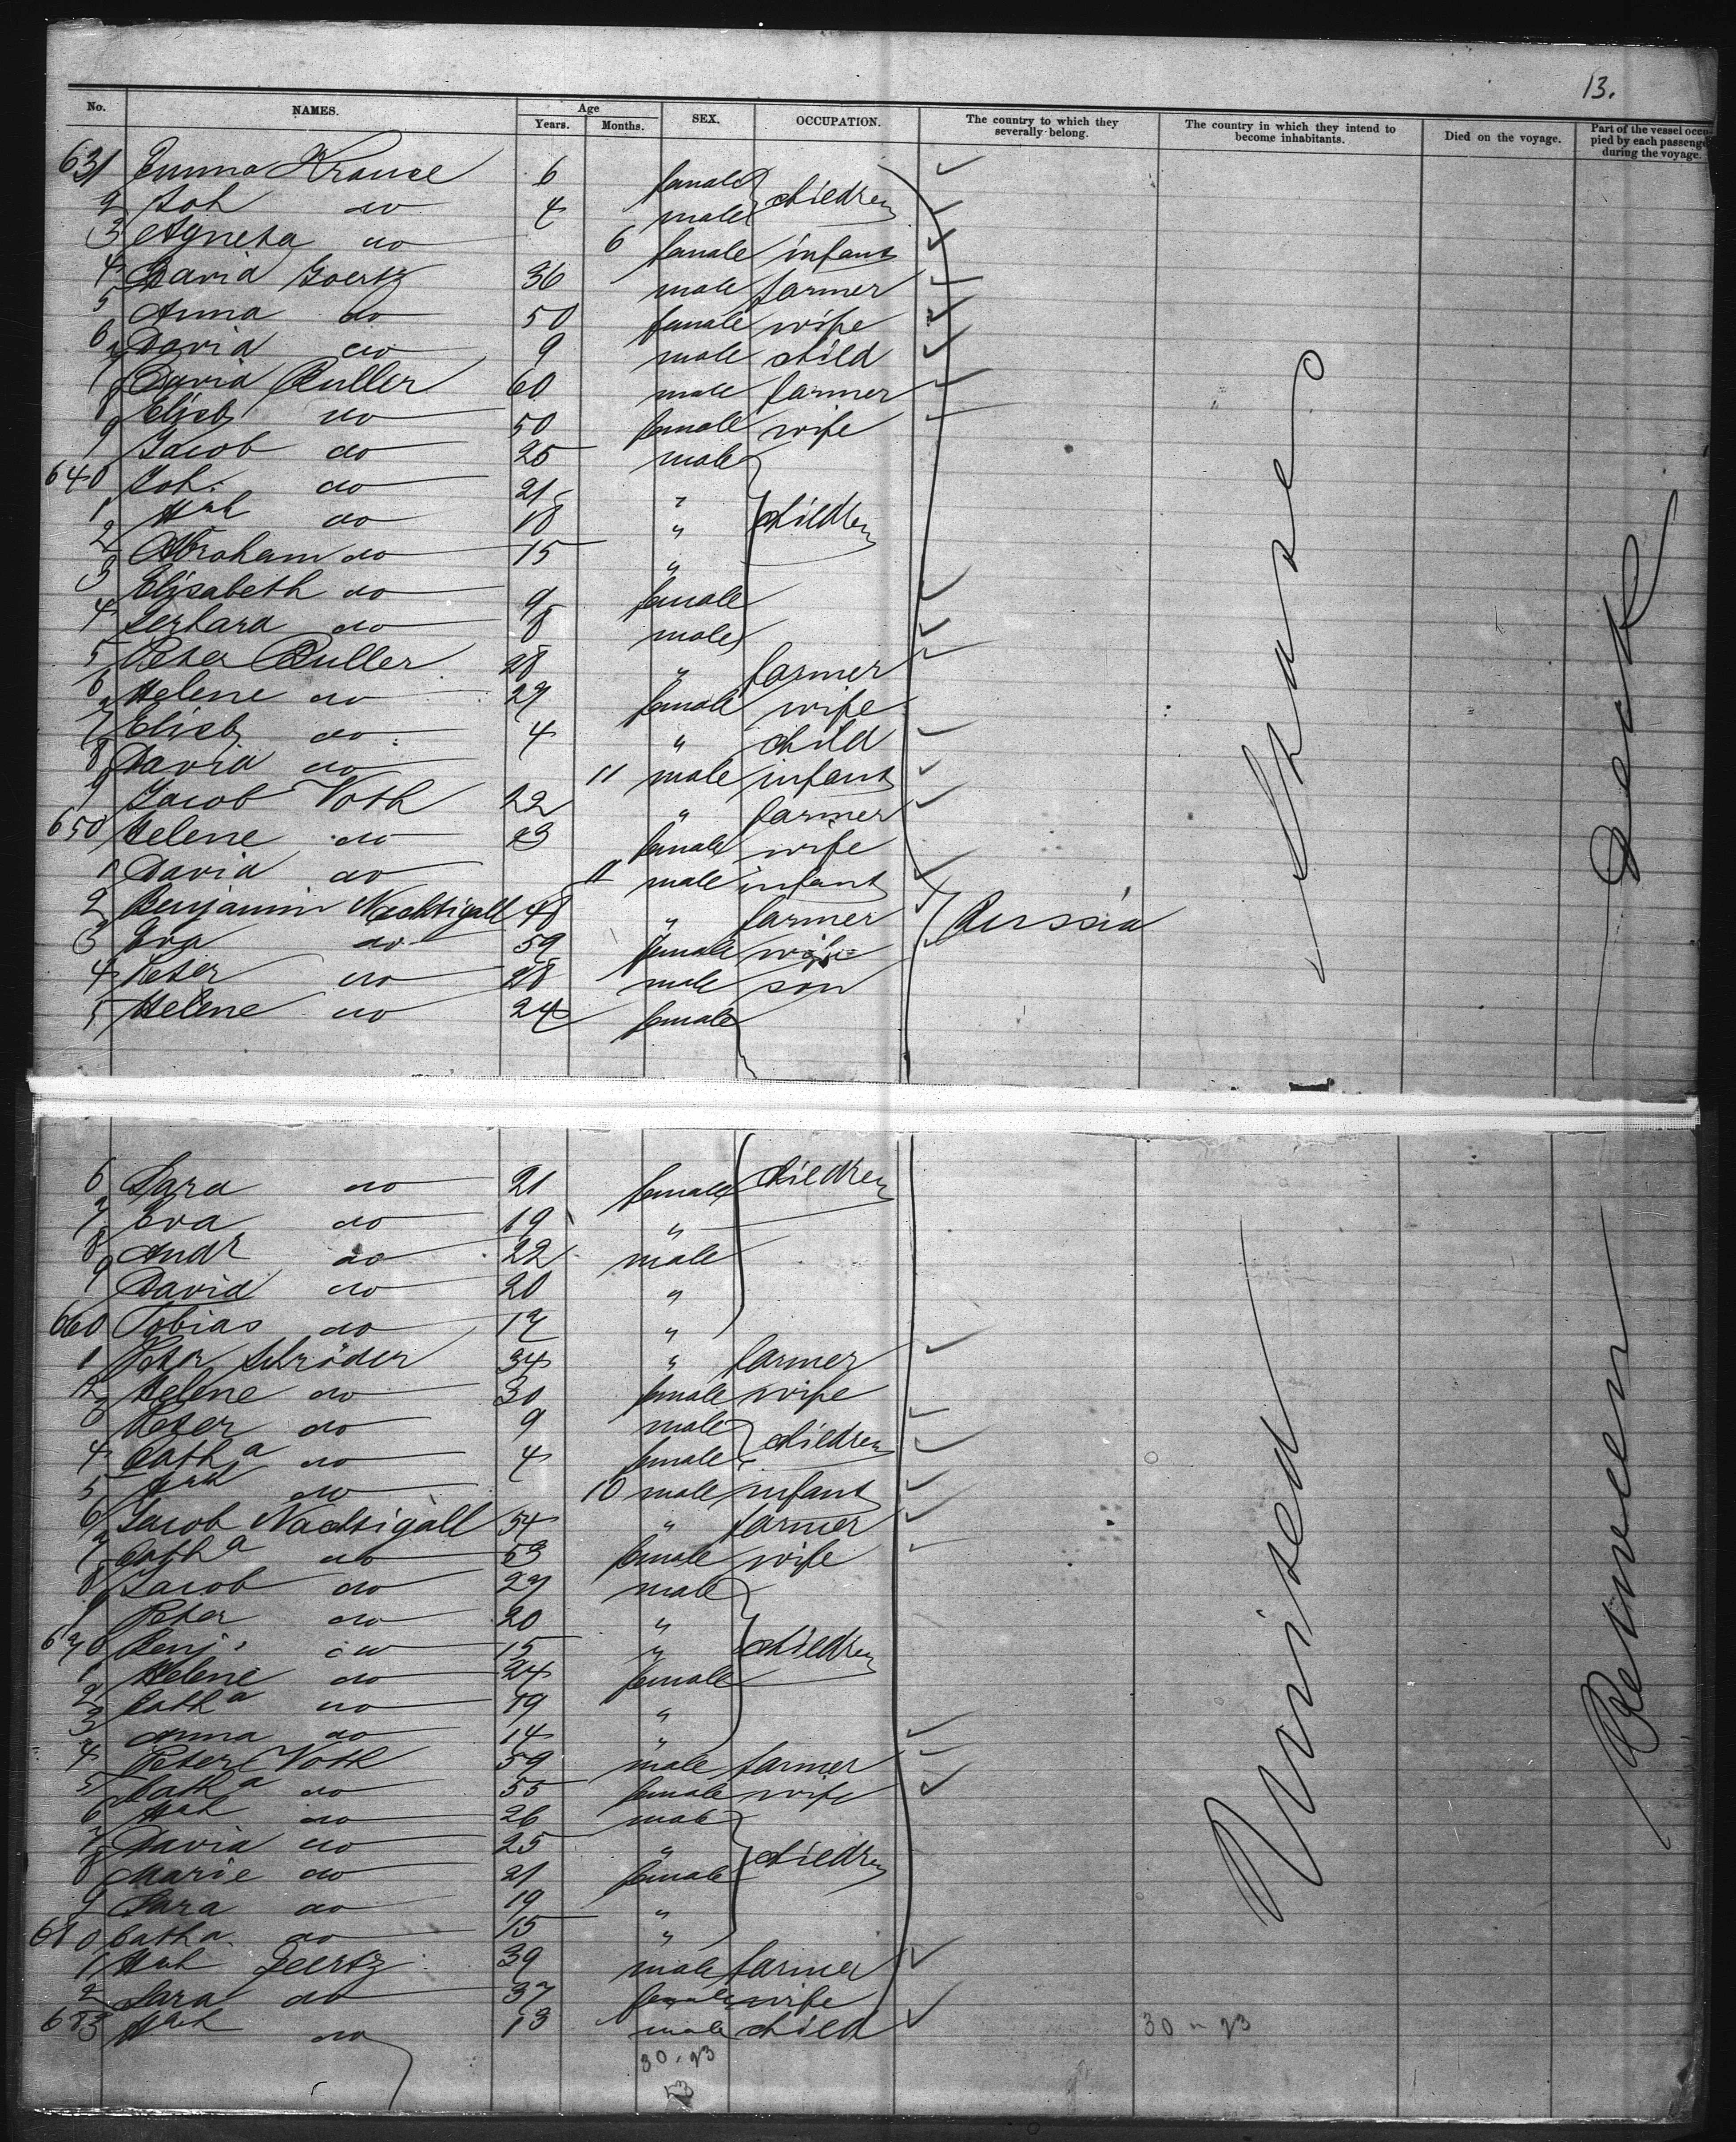 13.
No. NAMES. Age Years. Months. SEX. OCCUPATION. The country to which they severally belong. The country in which they intend to become inhabitants. Died on the voyage. Part of the vessel occupied by each passenger during the voyage.
631 Emma Krause 6 female children
2 Joh do 4 male
3 Agneta do 6 female infant
4 David Goertz 36 male farmer
5 Anna do 50 female wife
6 David do 9 male child
7 David Buller 60 male farmer
8 Elisb do 50 female wife
9 Jacob do 25 male
640 Joh. do 21 "
1 Hch do 18 " children
2 Abraham do 15 "
3 Elisabeth do 9 female
4 Gerhard do 8 male
5 Peter Buller 28 " farmer
6 Helene do 27 female wife
7 Elisb do 4 " child
8 David do 11 male infant
9 Jacob Voth 22 " farmer
650 Helene do 23 female wife
1 David do 11 male infant
2 Benjamin Nachtigall 48 " farmer Russia
3 Eva do 59 female wife
4 Peter do 28 male son
5 Helene do 24 female
6 Sara do 21 female children
7 Eva do 19 "
8 Andr do 22 male
9 David do 20 "
660 Tobias do 17 "
1 Peter Schröder 34 " farmer
2 Helene do 30 female wife
3 Peter do 9 male children
4 Catha do 4 female
5 Hch do 10 male infant
6 Jacob Nachtigall 54 " farmer
7 Catha do 53 female wife
8 Jacob do 27 male
9 Peter do 20 "
670 Benj. do 15 " children
1 Helene do 24 female
2 Catha do 19 "
3 Anna do 14 "
4 Peter Voth 59 male farmer
5 Catha do 55 female wife
6 Hch do 26 male
7 David do 25 " children
8 Marie do 21 female
9 Sara do 19 "
680 Catha do 15 "
1 Hch Goertz 39 male farmer
2 Sara do 37 female wife
683 Hch do 13 male child
30 " 23
30 . 23
53
United States
Between Deck